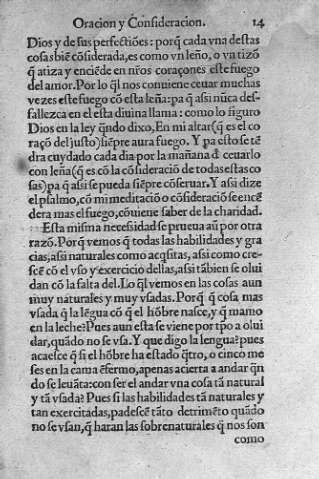 Oracion y Consideracion. 14
Dios y de sus perfectiões: porq̃ cada vna destas
cosas biẽ cõsiderada, es como vn leño, o vn tizõ
q̃ atiza y enciẽde en nr̃os coraçones este fuego
del amor. Por lo q̃l nos conuiene ceuar muchas
vezes este fuego cõ esta leña: pa q̃ assi nũca des-
fallezca en el esta diuina llama: como lo figuro
Dios en la ley q̃ndo dixo, En mi altar (q̃ es el co
raçõ del justo) siẽpre aura fuego. Y pa esto se tẽ
dra cuydado cada dia por la mañana ď ceuarlo
con leña (q̃ es cõ la cõsideraciõ de todas estas co
sas) pa q̃ assi se pueda siẽpre cõseruar. Y assi dize
el psalmo, cõ mi meditaciõ o cõsideraciõ se encẽ
dera mas el fuego, cõuiene saber de la charidad.
Esta misma necessidad se prueua aũ por otra
razõ. Porq̃ vemos q̃ todas las habilidades y gra
cias, assi naturales como acq̃sitas, assi como cre-
scẽ cõ el vso y exercicio dellas, assi tãbien se olui
dan cõ la falta del. Lo q̃l vemos en las cosas aun
muy naturales y muy vsadas. Porq̃ q̃ cosa mas
vsada q̃ la lẽgua cõ q̃ el hõbre nasce, y q̃ mamo
en la leche? Pues aun esta se viene por tp̃o a olui
dar, quãdo no se vsa. Y que digo la lengua? pues
acaesce q̃ si el hõbre ha estado q̃tro, o cinco me
ses en la cama ẽfermo, apenas acierta a andar q̃n
do se leuãta: con ser el andar vna cosa tã natural
y tã vsada? Pues si las habilidades tã naturales y
tan exercitadas, padescẽ tãto detrimẽto quãdo
no se vsan, q̃ haran las sobrenaturales q̃ nos son
como